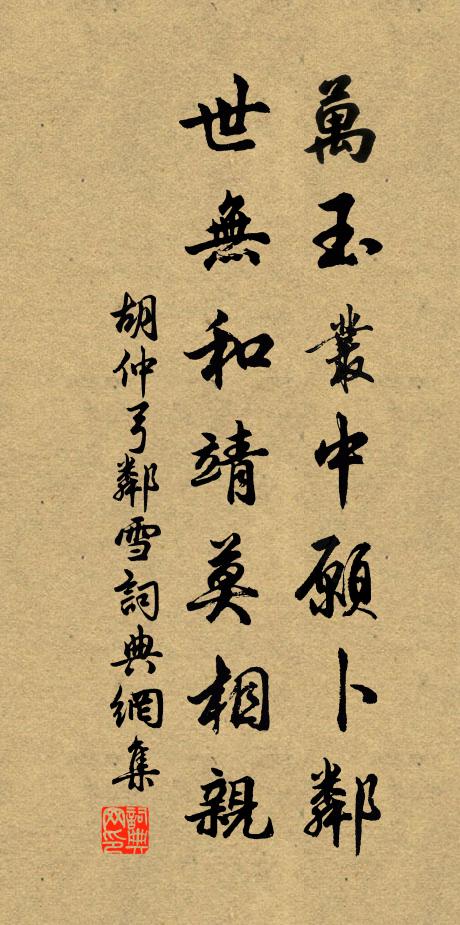 萬玉叢中願卜鄰
世無和靖莫相親
胡仲弓鄰雪詞典網集
詞典網印